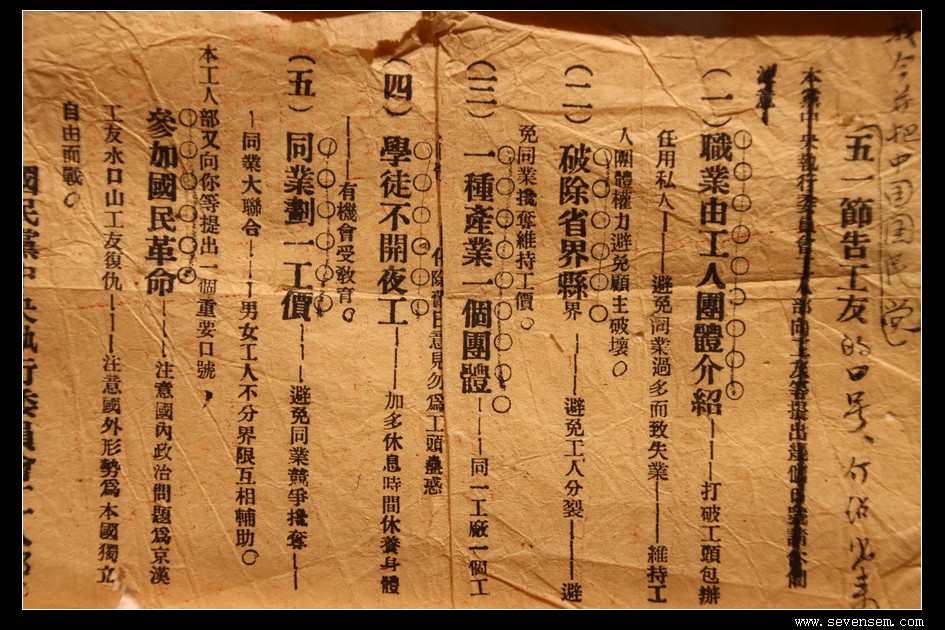 中国国民党
五一節告工友的口号、
本黨中央執行委員會工人部向工友等提出
（一）職業由工人團體介紹———打破工頭包辦
任用私人——避免同業過多而致失業———維持工
人團體權力避免顧主破壞。
（二）破除省界縣界——避免工人分裂——避
免同業攙奪維持工價。
（三）一種產業一個團體———同一工廠一個工
意見勿爲工頭蠱惑
（四）學徒不開夜工———加多休息時間休養身體
———有機會受敎育。
（五）同業劃一工價———避免同業競爭攙奪——
—同業大聯合——男女工人不分界限互相輔助。
本工人部又向你等提出一個重要口號，
參加國民革命———注意國內政治問題爲京漢
工友水口山工友復仇———注意國外形勢爲本國獨立
自由而戰。
國民黨中央執行委員會工人部
www.sevensem.com